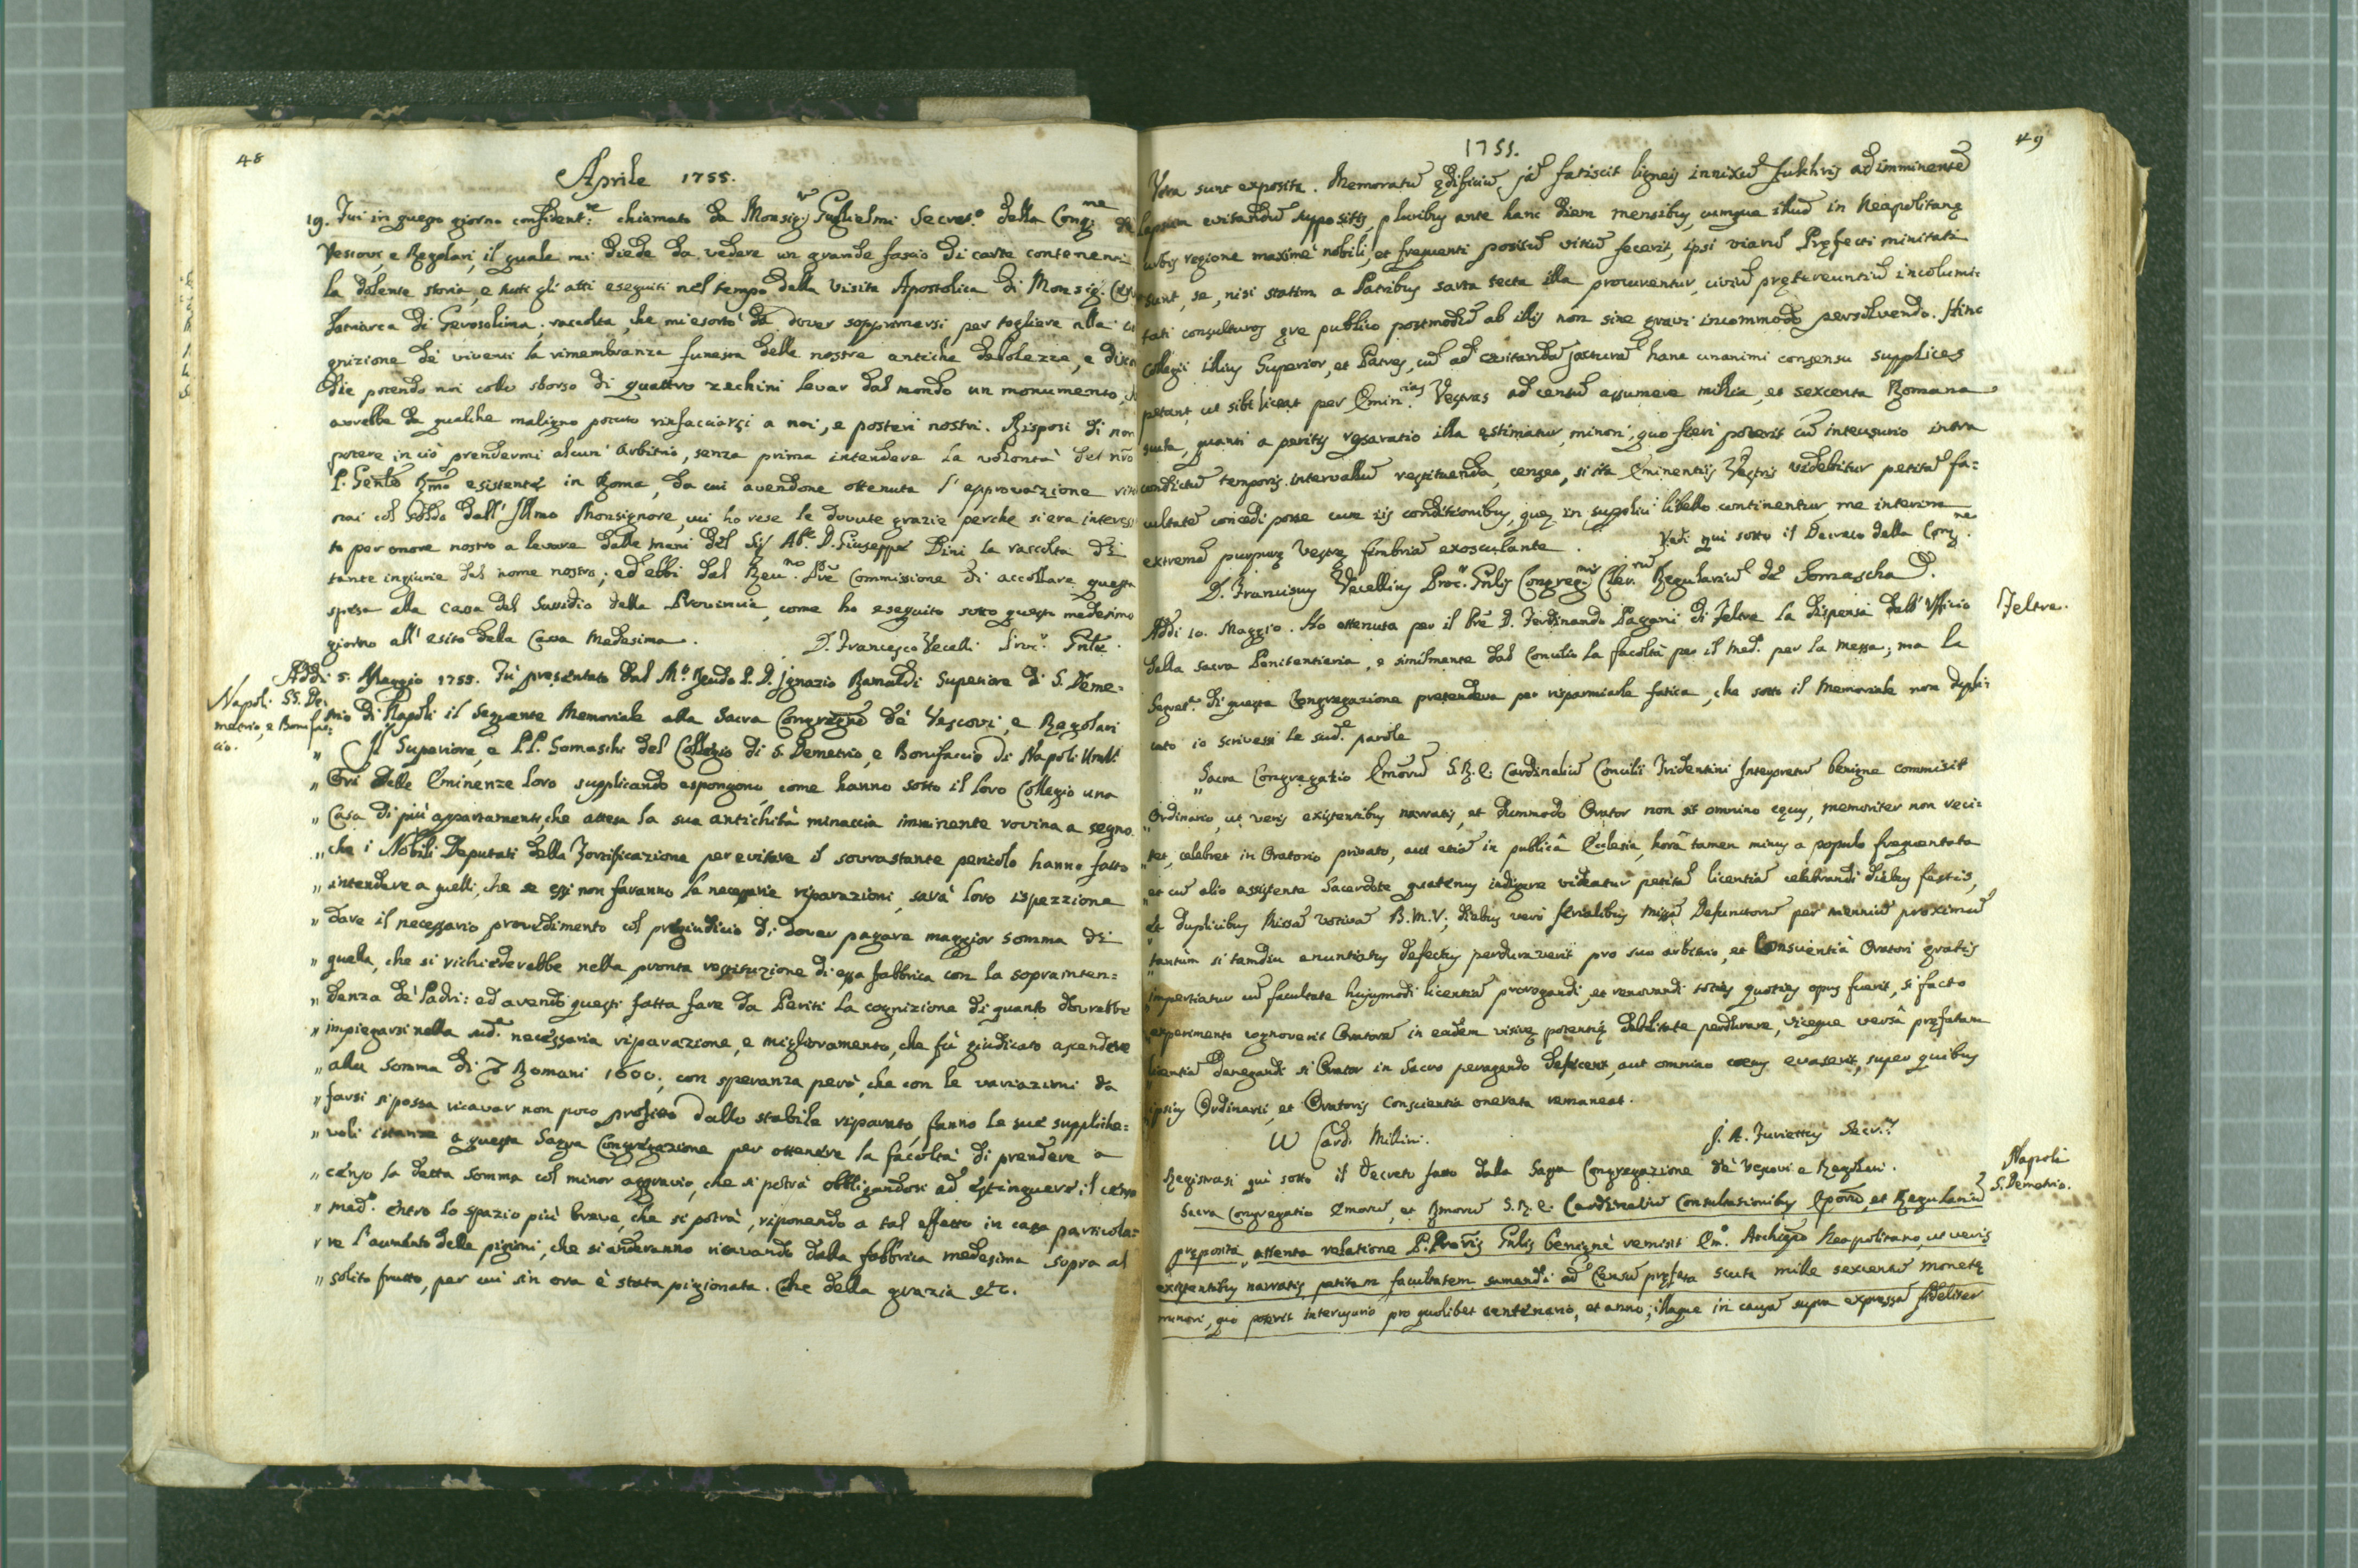 48
Aprile 1755.
19. Fui in questo giorno confident.te chiamato da Monsig.r Guglielmi Secret.o della Cong.ne de
Vescovi, e Regolari, il quale mi diede da vedere un grande fascio di carte contenenti
la dolente storia, e tutti gli atti eseguiti nel tempo della visita Apostolica di Monsig.
Patriarca di Gerosolima. raccolta, che mi esortò da dover sopprimersi per togliere alla co
gnizione de' viventi la rimembranza funesta delle nostre antiche debolezze, e
die potendo noi collo sborso di quattro zechini levar dal mondo un monumento,
avrebbe da qualche maligno potuto rinfacciarsi a noi, e posteri nostri. Risposi di non
potere in ciò prendermi alcun' arbitrio, senza prima intendere la volontà del nr̃o
P. Genle Rm̃o esistente in Roma, da cui avendone ottenuta l'approvazione
nai col soldo dall' Illmo Monsignore, cui ho rese le dovute grazie perche si era interess
to per onore nostro a levare dalle mani del Sig.r Ab.e D. Giuseppe Dini la raccolta di
tante ingiurie del nome nostro; ed ebbi dal Reu.mo Pr̃e Commissione di accollare questa
spesa alla Cassa del Sussidio della Provincia, come ho eseguito sotto questo medesimo
giorno all' esito della Cassa medesima. D. Francesco Vecelli Proc.r Gnl̃e.
Addi 5. Maggio 1755. Fù presentato dal M.o Rẽndo P. D. Ignazio Ramaldi Superiore di S. Deme=
Napoli SS. De=
metrio, e Bonifac=
cio.
trio di Napoli il seguente Memoriale alla Sacra Congregne de' Vescovi, e Regolari
„ Il Superiore, e P.P. Somaschi del Collegio di S. Demetrio, e Bonifaccio di Napoli Uml.i
„ Ori delle Eminenze loro supplicando espongono, come hanno sotto il loro Collegio una
„ Casa di più appartamenti, che attesa la sua antichità minaccia imminente rovina a segno
„ che i Nobili Deputati della Fortificazione per evitare il sovrastante pericolo hanno fatto
„ intendere a quelli, che se essi non faranno le necessarie riparazioni, sarà loro ispezzione
„ dare il necessario provedimento col pregiudicio di dover pagare maggior somma di
„ quella, che si richiederebbe nella pronta restituzione di essa fabbrica con la soprainten=
„ denza de' Padri: ed avendo questi fatta fare da Periti la cognizione di quanto dovrebbe
„ impiegarsi nella sud.a necessaria riparazione, e miglioramento, che fù giudicato ascendere
„ alla somma di Romani 1600, con speranza però, che con le variazioni da
„ farsi si possa ricavar non poco profitto dallo stabile riparato, fanno le sue suppliche=
„ voli istanze a questa Sagra Congregazione per ottenere la facoltà di prendere a
„ censo la detta somma col minor aggravio, che si potrà obbligandosi ad estinguere il censo
„ med.o entro lo spazio più breve, che si potrà, riponendo a tal effetto in cassa particola=
„ re l'aumento delle pigioni, che si anderanno ricavando dalla fabbrica medesima sopra al
„ solito frutto, per cui sin ora è stata pigionata. Che della grazia etc.
1755.
49
Vota sunt exposita. Memoratũ ędificiũ jã fatiscit ligneis innixũ fulchris ad imminentẽ
lapsum evitandũ suppositis, pluribus ante hanc diem mensibus, cumque illud in Neapolitanę
urbis regione maximè nobili, et frequenti positũ vitiũ fecerit, ipsi viarũ Pręfecti minitati
sunt, se, nisi statim a Patribus sarta tecta illa procurentur, civiũ prętereuntiũ incolumi=
tati consulturos ęre publico postmodũ ab illis non sine gravi incommodo persolvendo. Hinc
Collegii illius Superior, et Patres, cũ ad evitandã jacturã hanc unanimi consensu supplices
petant, ut sibi liceat per Emin.tias Vestras ad censũ assumere millia, et sexcenta Romana
scuta, quanti a peritis reparatio illa ęstimatur, minori, quo fieri poterit cũ interusurio intra
condictũ temporis intervallũ restituenda, censeo, si ita Eminentiis Vestris videbitur petitã fa=
cultatẽ concedi posse cum iis conditionibus, quę in supplici libello continentur, me interim
extremã purpurę Vestrę fimbriã exosculante. Vedi qui sotto il Decreto della Cong.ne
D. Franciscus Vecellius Proc.r Gnl̃is Congreg.nis Cler.rum Regulariũ de Somascha.
Addì 10. Maggio. Ho ottenuta per il Pr̃e D. Ferdinando Pagani di Feltre la dispensa dall' Officio
Feltre.
dalla sacra Penitentieria, e similmente dal Concilio la facoltà per il med.o per la messa; ma la
Segret.a di questa Congregazione pretendeva per risparmiarle fatica, che sotto il Memoriale non dupli=
cato io scrivessi le sud.e parole
„ Sacra Congregatio Em̃orũ S.R.E. Cardinaliũ Concilii Tridentini Interpretũ benigne commisit
„ Ordinario, ut veris existentibus narratis, et dummodo Orator non sit omnino cęcus, memoriter non reci=
„ tet, celebret in Oratorio privato, aut etiã in publicâ Ecclesia, horâ tamen minus a populo frequentata
„ et cũ alio assistente Sacerdote quatenus indigere videatur petitã licentiã celebrandi diebus festis,
„ et duplicibus Missã votivã B.M.V; diebus verò ferialibus missã Defunctorũ per trienniũ proximũ
„ tantum si tamdiu enuntiatus defectus perduraverit pro suo arbitrio, et Conscientiâ Oratori gratis
„ impertiatur cũ facultate hujusmodi licentiã prorogandi, et renovandi toties quoties opus fuerit, si facto
„ experimento cognoverit Oratorẽ in eadem visivę potentię debilitate perdurare, viceque versâ pręfatam
„ licentiã denegandi si Orator in Sacro peragendo deficeret, aut omnino cęcus evaserit, super quibus
ipsius Ordinarii, et Oratoris Conscientia onerata remaneat.
Card. Millini. J. A. Furiettus Secr.
Registrasi quì sotto il decreto fatto dalla Sagra Congregazione de' Vescovi e Regolari.
Napoli
S. Demetrio.
Sacra Congregatio Em̃orũ, et Rm̃orũ S.R.E. Cardinaliũ Consultationibus Ep̃orũ, et Regulariũ
pręposita, attenta relatione P. Proc̃ris Gnl̃is benignè remisit Em̃o Archiep̃o Neapolitano, ut veris
existentibus narratis petitam facultatem sumandi ad Censũ pręfata scuta mille sexcenta monetę
minori, quo poterit interusurio pro quolibet centenario, et anno; illaque in causã supra expressã fideliter